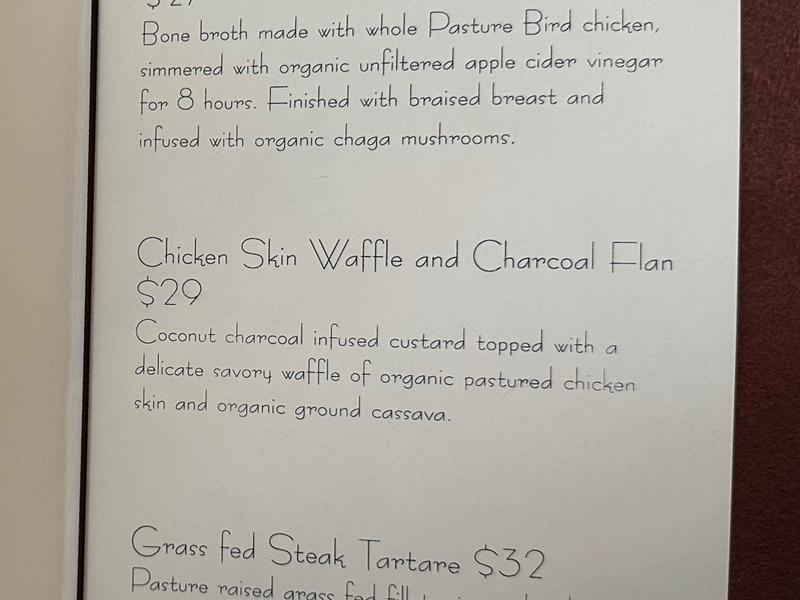 Bone broth made with whole Pasture Bird chicken,
simmered with organic unfiltered apple cider vinegar
for 8 hours. Finished with braised breast and
infused with organic chaga mushrooms.
Chicken Skin Waffle and Charcoal Flan
$29
Coconut charcoal infused custard topped with a
delicate savory waffle of organic pastured chicken
skin and organic ground cassava.
Grass fed Steak Tartare $32
Pasture raised grass fed